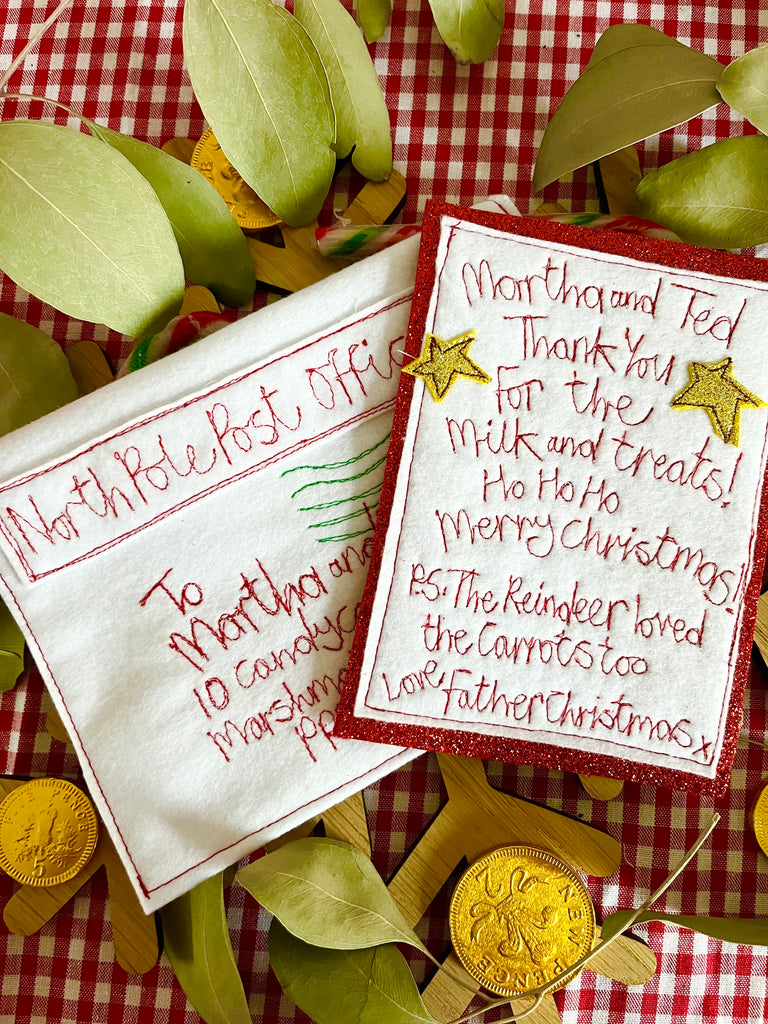 North Pole Post Office
To
Martha and
10 Candyca
Marshma
Martha and Ted
Thank You
For the
Milk and treats!
Ho Ho Ho
Merry Christmas!
P.S. The Reindeer loved
the Carrots too
Love Father Christmas x
5
NEW PENCE
2
NEW PENCE